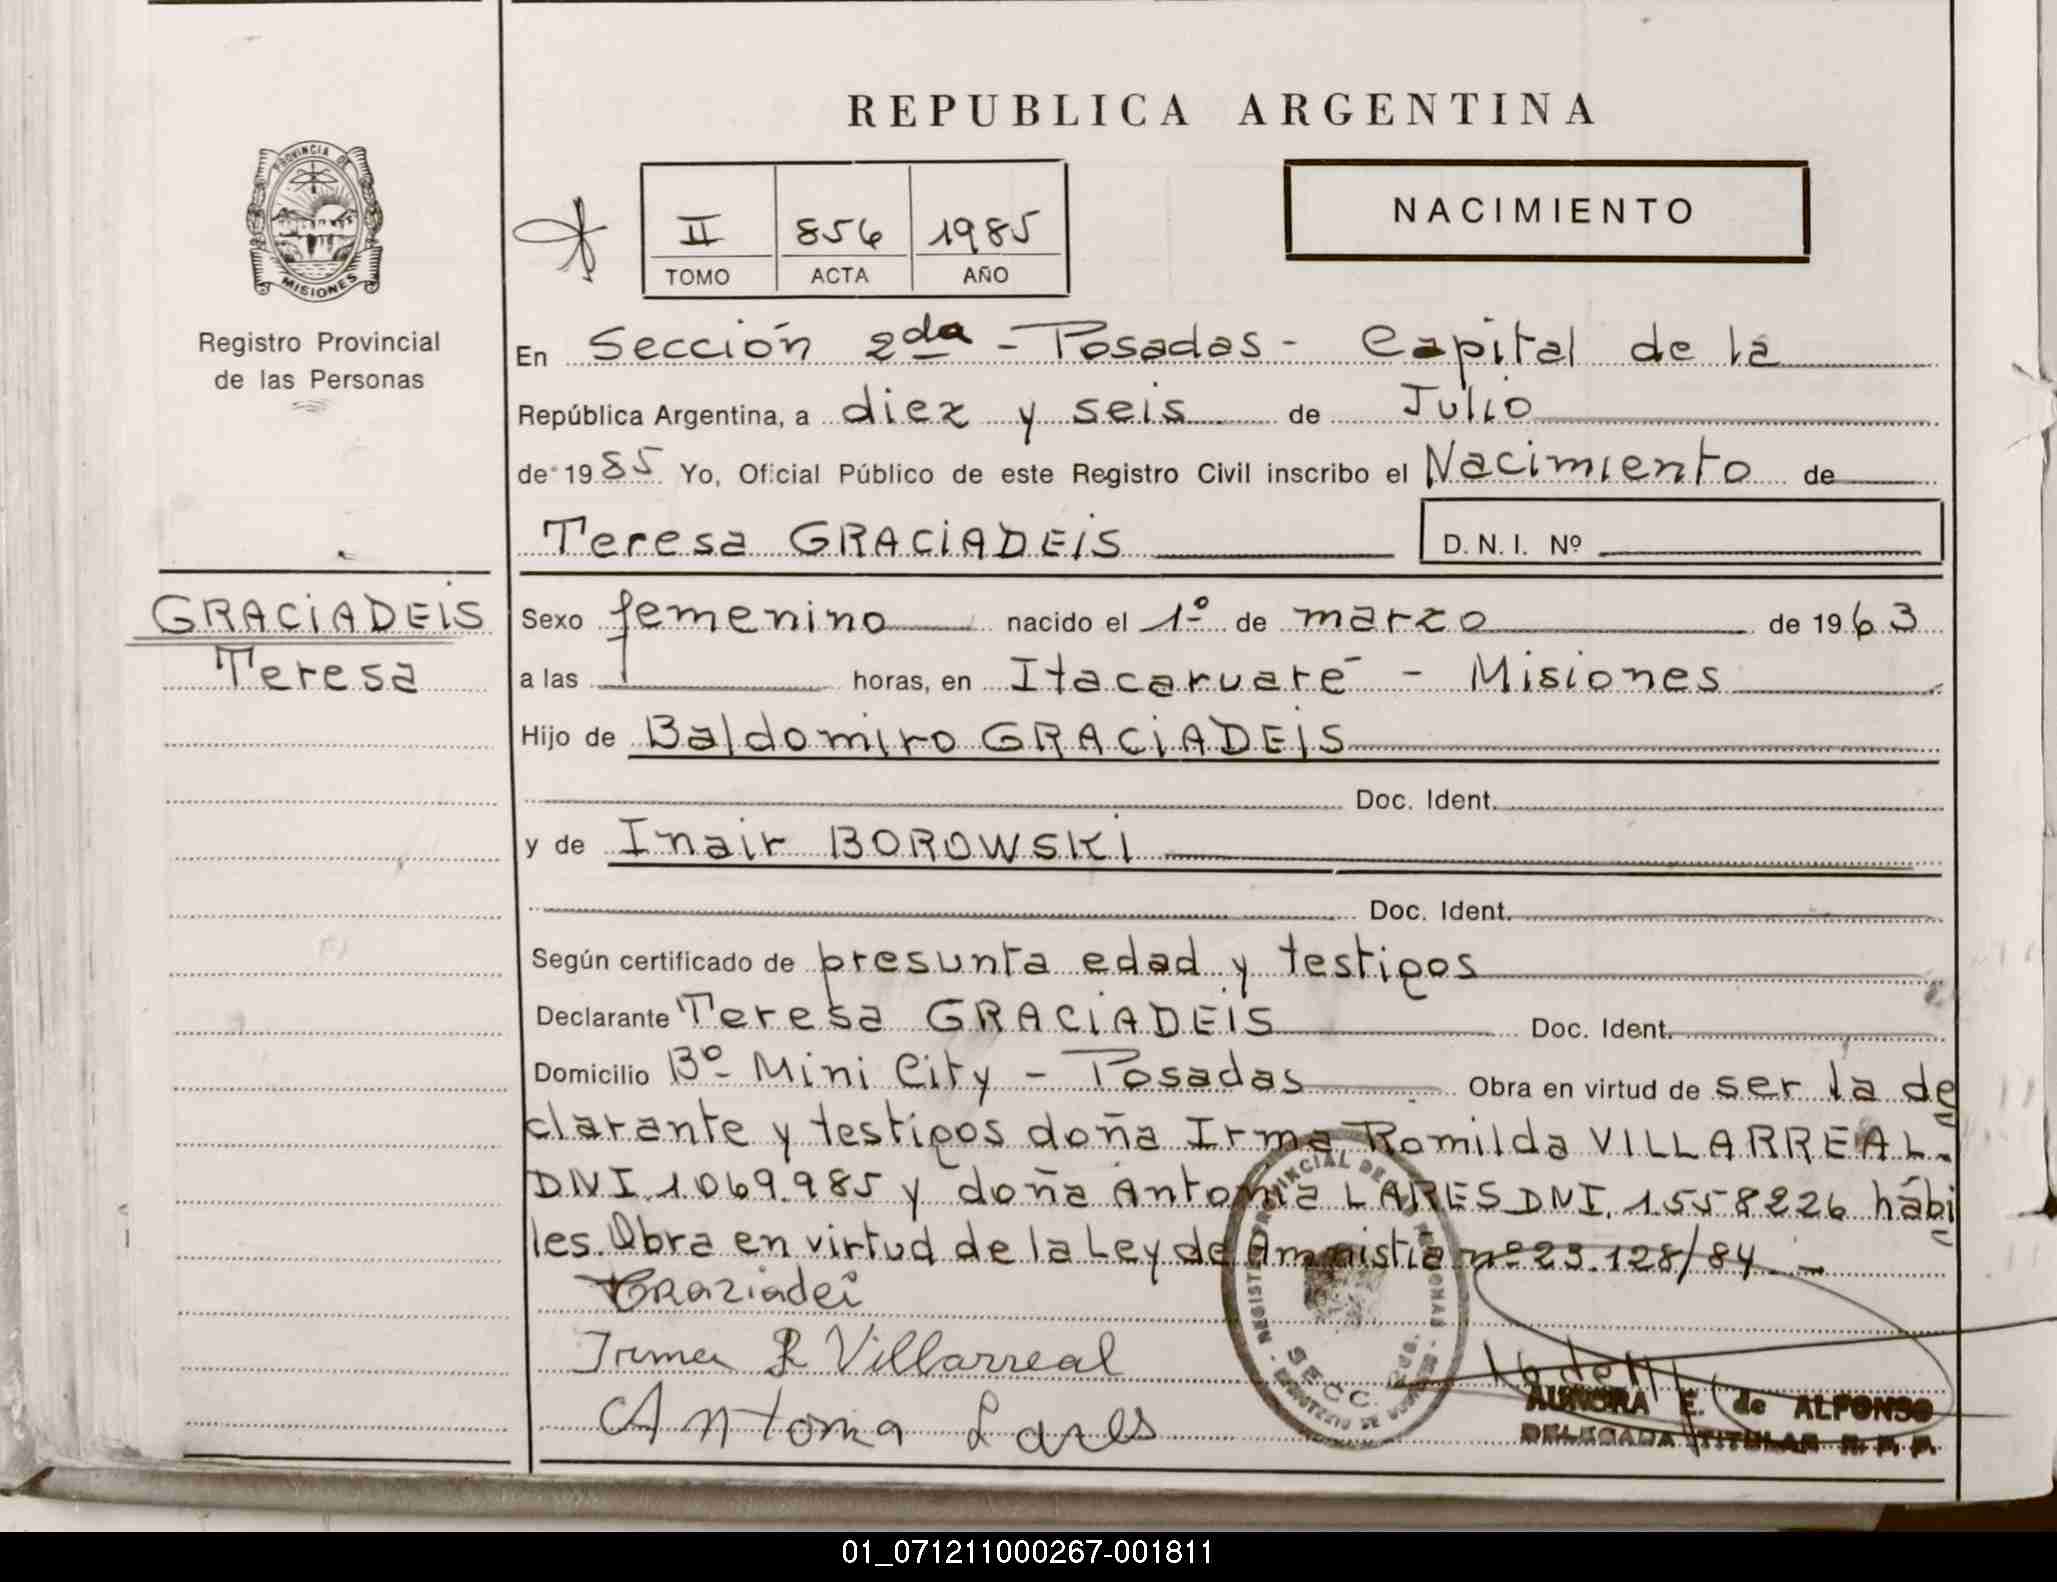 REPUBLICA ARGENTINA
PROVINCIA DE
MISIONES
Registro Provincial
de las Personas
II 856 1985
TOMO ACTA AÑO
NACIMIENTO
En Sección 2da - Posadas - Capital de la
República Argentina, a diez y seis de Julio
de 1985 Yo, Oficial Público de este Registro Civil inscribo el Nacimiento de
Teresa GRACIADEIS D.N.I. Nº
GRACIADEIS
Teresa
Sexo femenino nacido el 1º de marzo de 1963
a las horas, en Itacaruaré - Misiones
Hijo de Baldomiro GRACIADEIS
Doc. Ident.
y de Inair BOROWSKI
Doc. Ident.
Según certificado de presunta edad y testigos
Declarante Teresa GRACIADEIS Doc. Ident.
Domicilio Bº Mini City - Posadas Obra en virtud de ser la de
clarante y testigos doña Irma Romilda VILLARREAL.
DNI.1.069.985 y doña Antonia LARES DNI. 1.558226 hábi
les. Obra en virtud de la Ley de Amnistia nº 23.128/84.-
Graziadei
Irma R Villarreal
Antonia Lares
REGISTRO PROVINCIAL DE LAS PERSONAS
SECC.
AURORA E. de ALFONSO
DELEGADA TITULAR R. P. P.
01_071211000267-001811